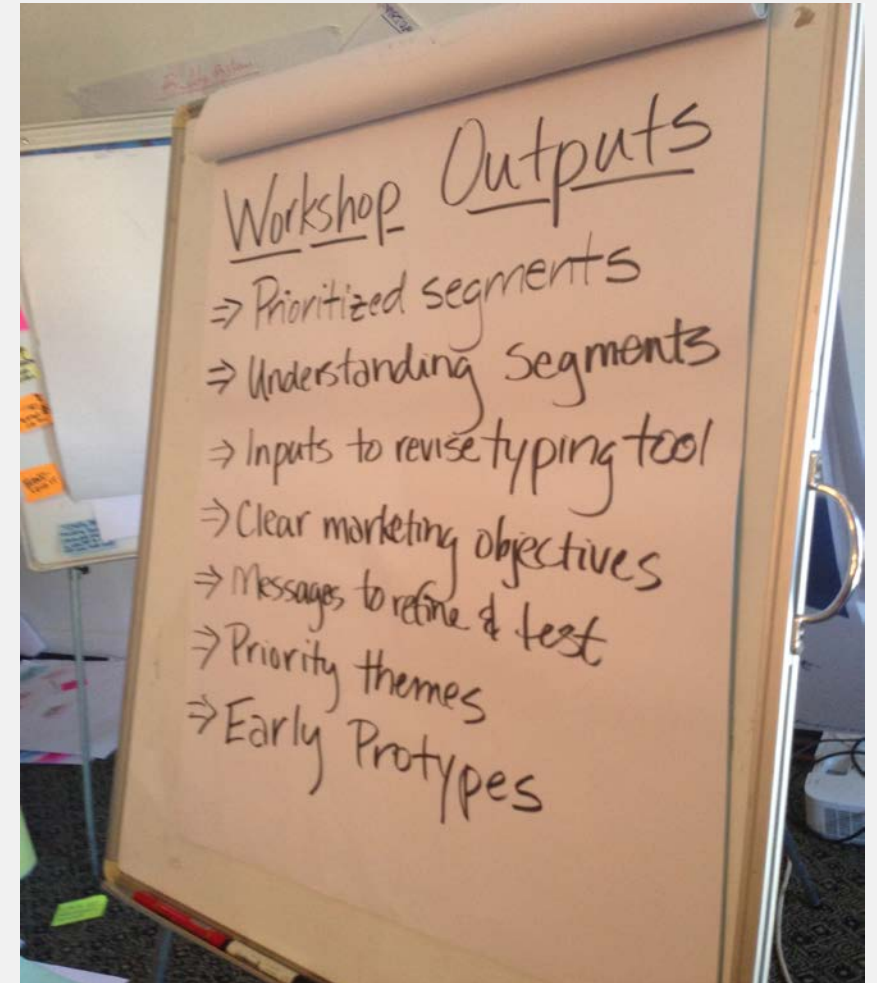 Workshop Outputs
⇒ Prioritized segments
⇒ Understanding segments
⇒ Inputs to revise typing tool
⇒ Clear marketing objectives
⇒ Messages to refine & test
⇒ Priority themes
⇒ Early Protypes